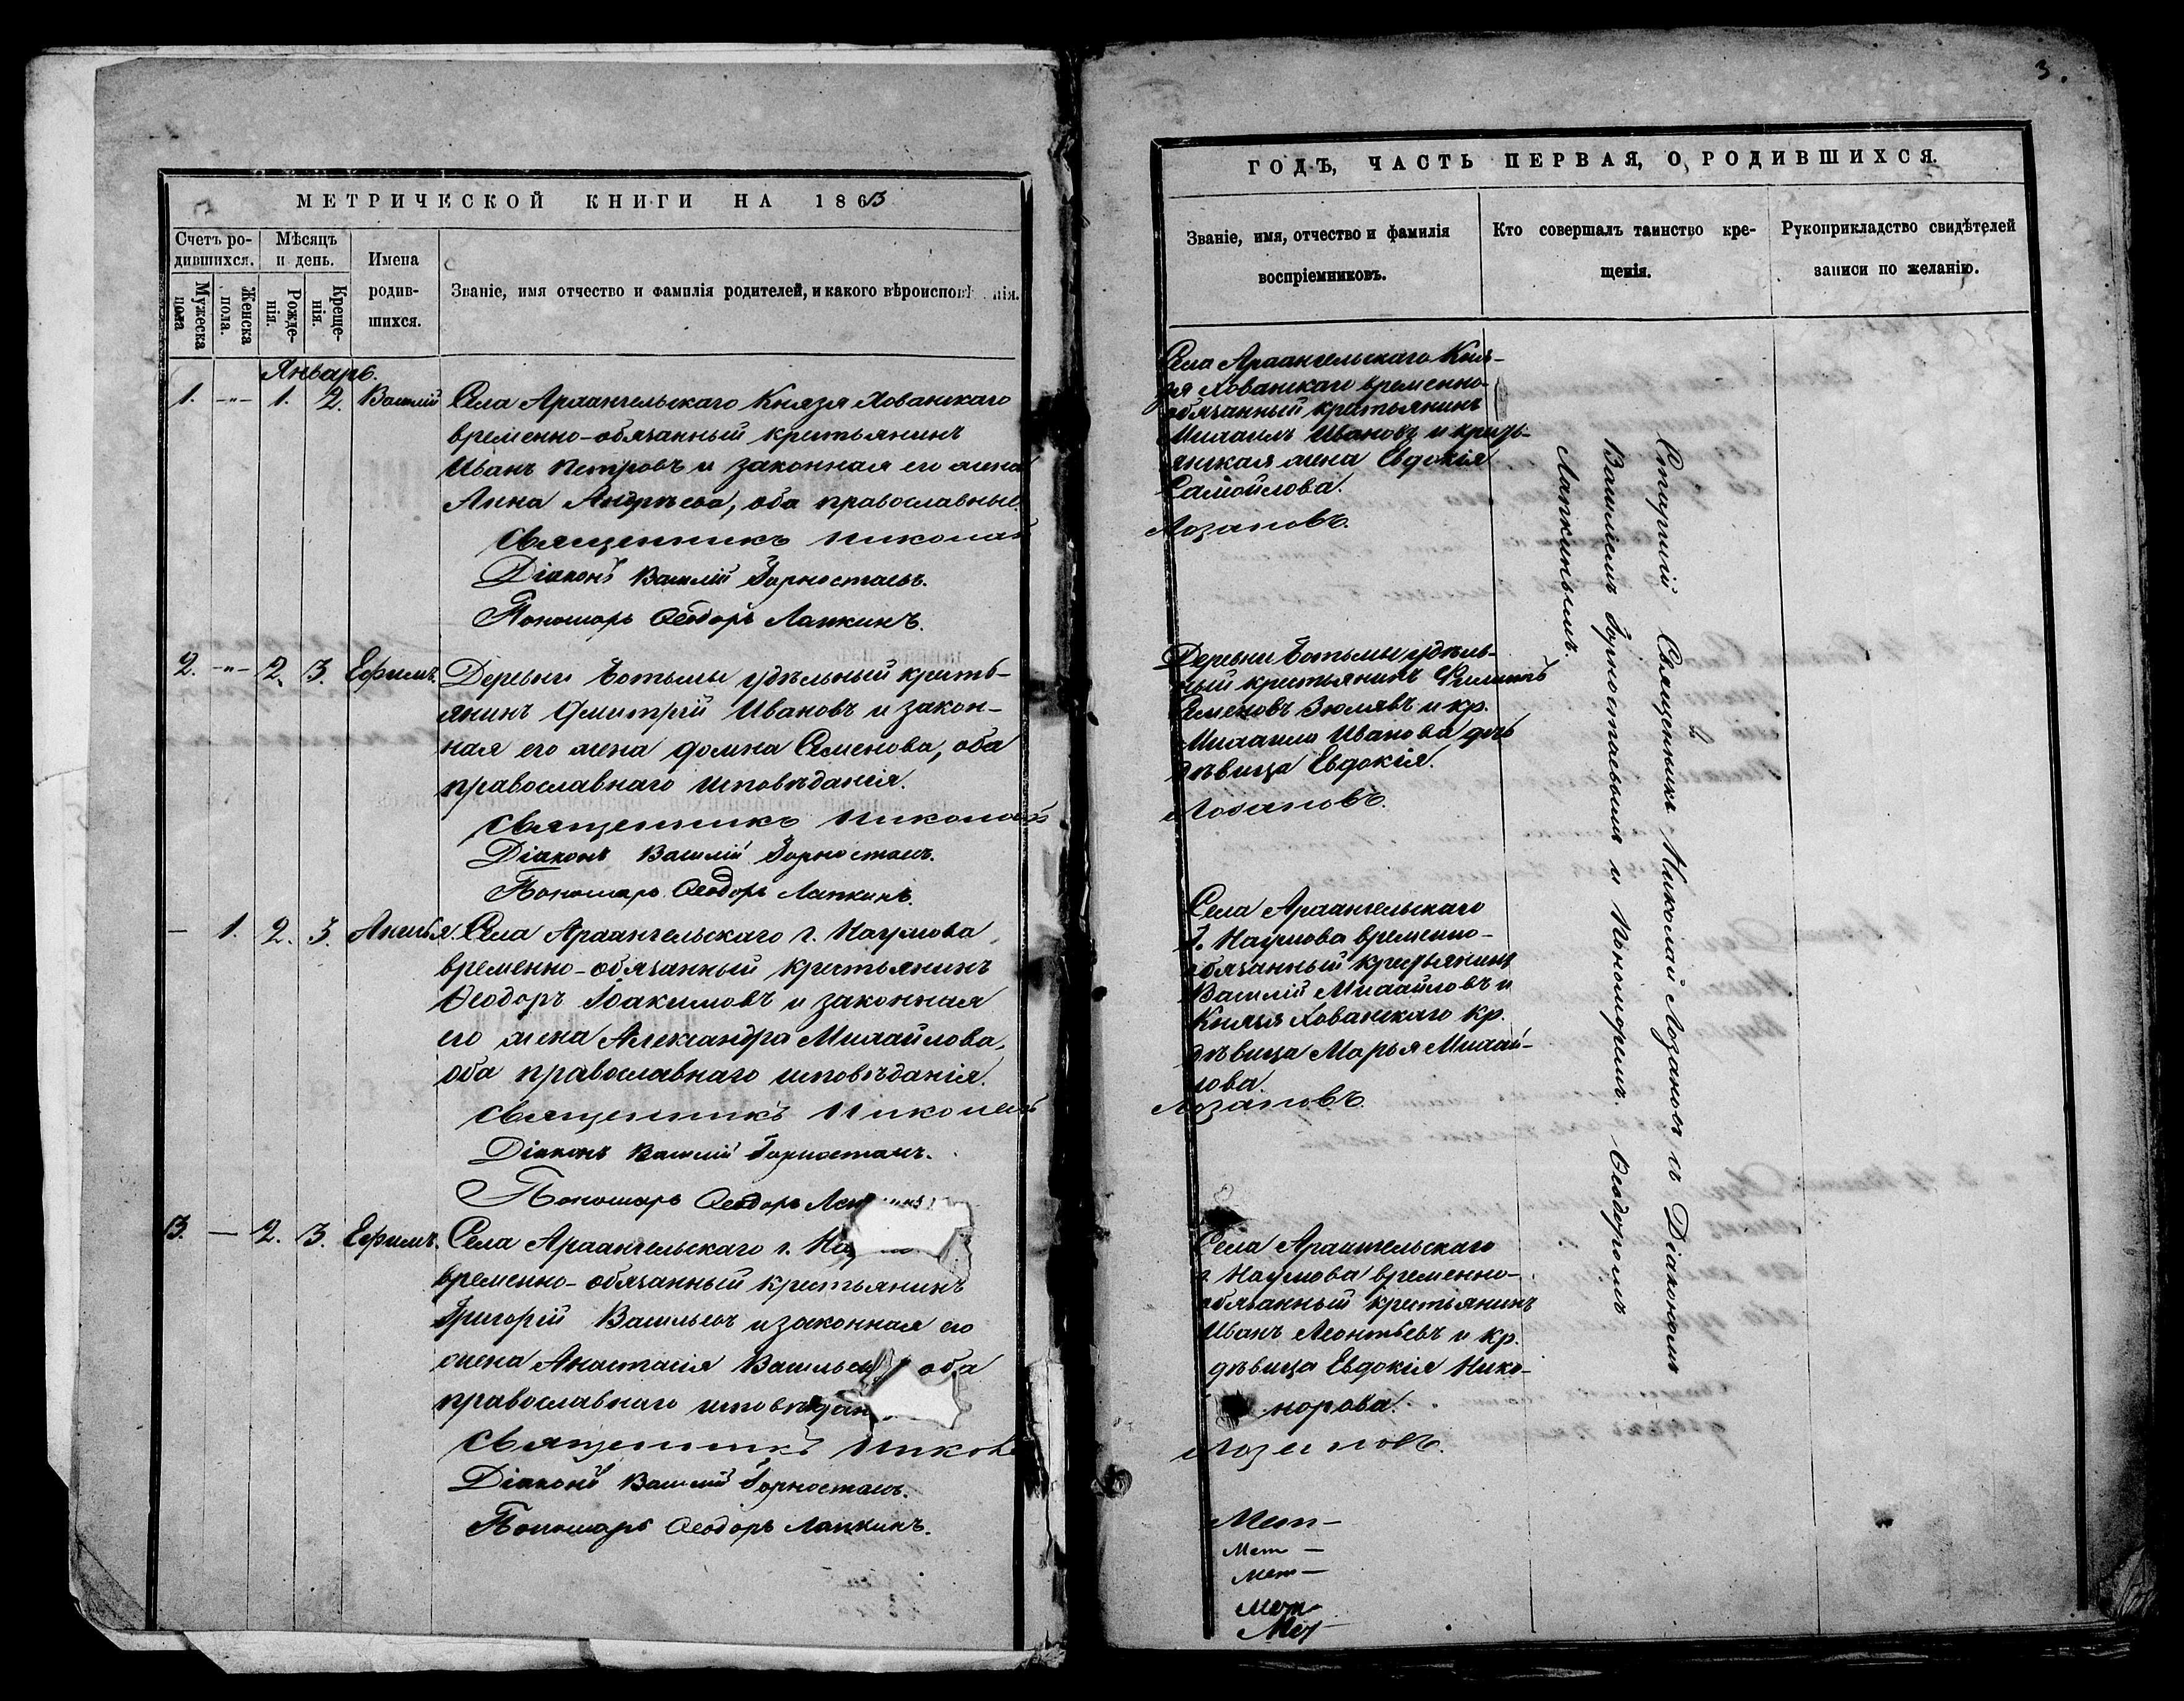 МЕТРИЧЕСКОЙ КНИГИ НА 1863
Счетъ ро-
дившихся.
Мѣсяцъ
и день.
Имена
родив-
шихся.
Званіе, имя отчество и фамилія родителей, и какого вѣроисповѣ нія.
Мужеска
пола
Женска
пола.
Рожде-
нія.
Креще-
нія.
Январь.
1. -„- 1. 2. Василій Села Архангельскаго Князя Хованскаго
временно-обязанный крестьянинъ
Иванъ Петровъ и законная его жена
Анна Андреева, оба православные.
Священникъ Николай
Діаконъ Василій Горностаевъ.
Пономарь Ѳеодоръ Лапкинъ.
2. -„- 2. 3. Ефимъ. Деревни Ботьмы удѣльный кресть-
янинъ Дмитрій Ивановъ и закон-
ная его жена Домна Семенова, оба
православнаго исповѣданія.
Священникъ Николай
Діаконъ Василій Горностаевъ.
Пономарь Ѳеодоръ Лапкинъ.
— 1. 2. 3. Анисья. Села Архангельскаго г. Наумова
временно-обязанный крестьянинъ
Ѳеодоръ Іоакимовъ и законная
его жена Александра Михайлова,
оба православнаго исповѣданія.
Священникъ Николай
Діаконъ Василій Горностаевъ.
Пономарь Ѳеодоръ
3. — 2. 3. Ефимъ. Села Архангельскаго г.
временно-обязанный крестьянинъ
Григорій Васильевъ и законная его
жена Анастасія оба
православнаго
Священникъ
Діаконъ Василій Горностаевъ.
Пономарь Ѳеодоръ Лапкинъ.
3.
ГОДЪ, ЧАСТЬ ПЕРВАЯ, О РОДИВШИХСЯ.
Званіе, имя, отчество и фамилія
воспріемниковъ.
Кто совершалъ таинство кре-
щенія.
Рукоприкладство свидѣтелей
записи по желанію.
Села Архангельскаго Кня-
зя Хованскаго временно-
обязанный крестьянинъ
Михаилъ Ивановъ и кресть-
янская жена Евдокія
Самойлова.
Лозановъ.
Деревни Ботьмы удѣль-
ный крестьянинъ Филиппъ
Семеновъ и кр.
Михаила Иванова дочь
дѣвица Евдокія.
Лозановъ.
Села Архангельскаго
г. Наумова временно-
обязанный крестьянинъ
Василій Михайловъ и
Князя Хованскаго кр.
дѣвица Марья Михай-
лова.
Лозановъ.
Села Архангельскаго
г. Наумова временно-
обязанный крестьянинъ
Иванъ Леонтьевъ и кр.
дѣвица Евдокія Нико-
норова.
Лозановъ.
Мет—
Мет —
Мет—
Мет-
Мет
Священникъ Николай Лозановъ съ Діакономъ
Василіемъ Горностаевымъ и Пономаремъ Ѳеодоромъ
Лапкинымъ.